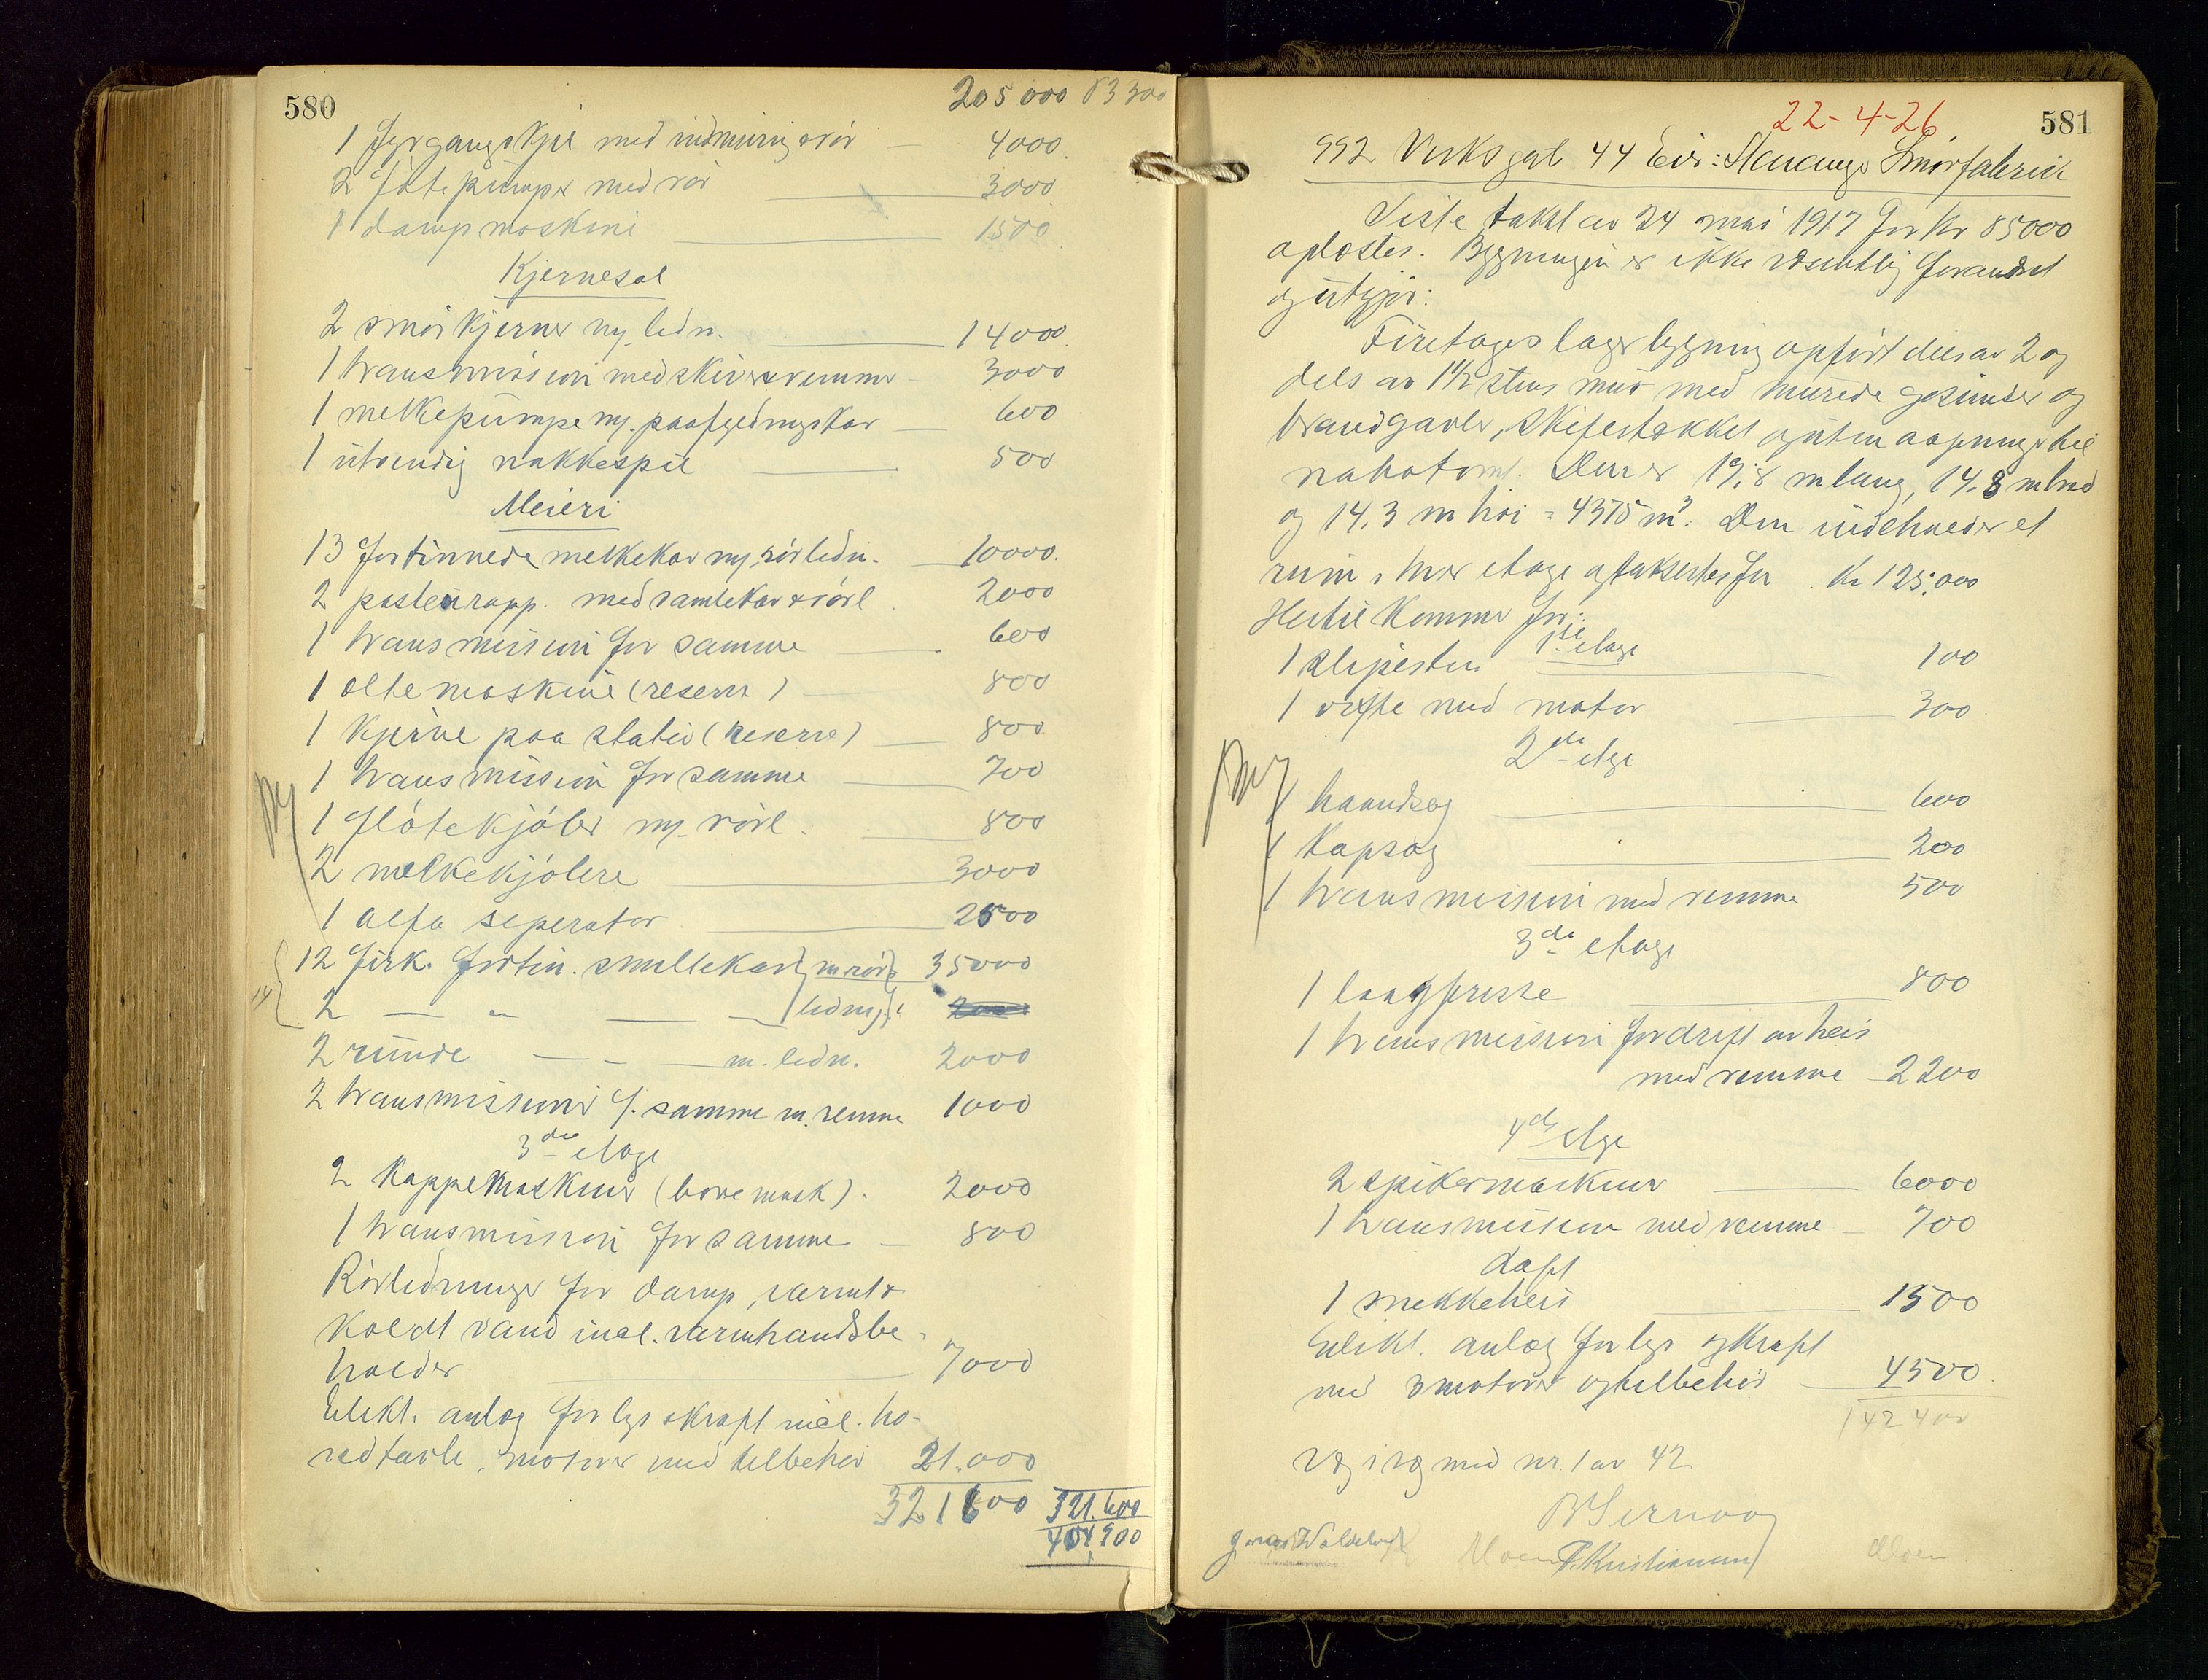 580
205 000 83 300
1 med indmuring & rör 4000
2 flötepumper med rör 3000
1 dampmaskine 1500
Kjernesal
2 smörkjerner m/ ledn. 14000
1 transmission med skiver & remmer 3000
1 melkepumpe m/ 600
1 utvendig nakkespil 500
Meieri
13 fortinnede melkekar m/ rörledn. 10000
2 pasteurapp. med samlekar & rörl. 2000
1 transmission for samme 600
1 eltemaskine (reserve) 800
1 Kjerne paa stativ (reserve) 800
1 transmission for samme 700
1 flötekjöler m/ rörl. 800
2 melkekjölere 3000
1 alfa seperator 2500
12 firk. fortin. smeltekar m. rör 35000
14 2 — „ — — ledning
2 runde — - — m. ledn. 2000
2 transmissioner f. samme m. remme 1000
3die etage
2 Kappemaskiner (bore mask). 2000
1 transmission for samme 800
Rörledninger for damp, varmt &
koldt vand incl. varmtvandsbe-
holder 7000
Elekt. anlæg for lys & kraft incl. ho-
vedtavle, motorer med tilbehör 21.000
321600 321.600
404,900
22-4-26
581
992 Verksgat 44 Eier: Stavanger Smörfabrik
Siste takst av 24 mai 1917 for Kr 85000
oplæstes. Bygningen er ikke væsentlig forandret
og utgjör:
Fireetages lagerbygning opfört dels av 2 og
dels av 1 1/2 stens mur med murede gesimser og
brandgavler, skifertækket og uten aapninger til
nabotomt. Den er 19,8 m lang, 14.8 m bred
og 14.3 m höi = 4375 m3. Den indeholder et
rum i hver etage og taksertes for Kr 125.000
Hertil kommer for:
1ste etage
1 slipesten 100
1 vifte med motor 300
2den etge
1 baandsag 600
1 Kapsag 200
1 transmission med remme 500
3die etage
1 800
1 transmission for drift av heis
med remme 2200
4de etge
2 spikermaskiner 6000
1 transmission med remme 700
Loft
1 sækkeheis 1500
Elekt. anlæg for lys og kraft
med 3 motorer og tilbehör 4500
142 400
Væg i væg med nr. 1 av 42
P. Kristiansen